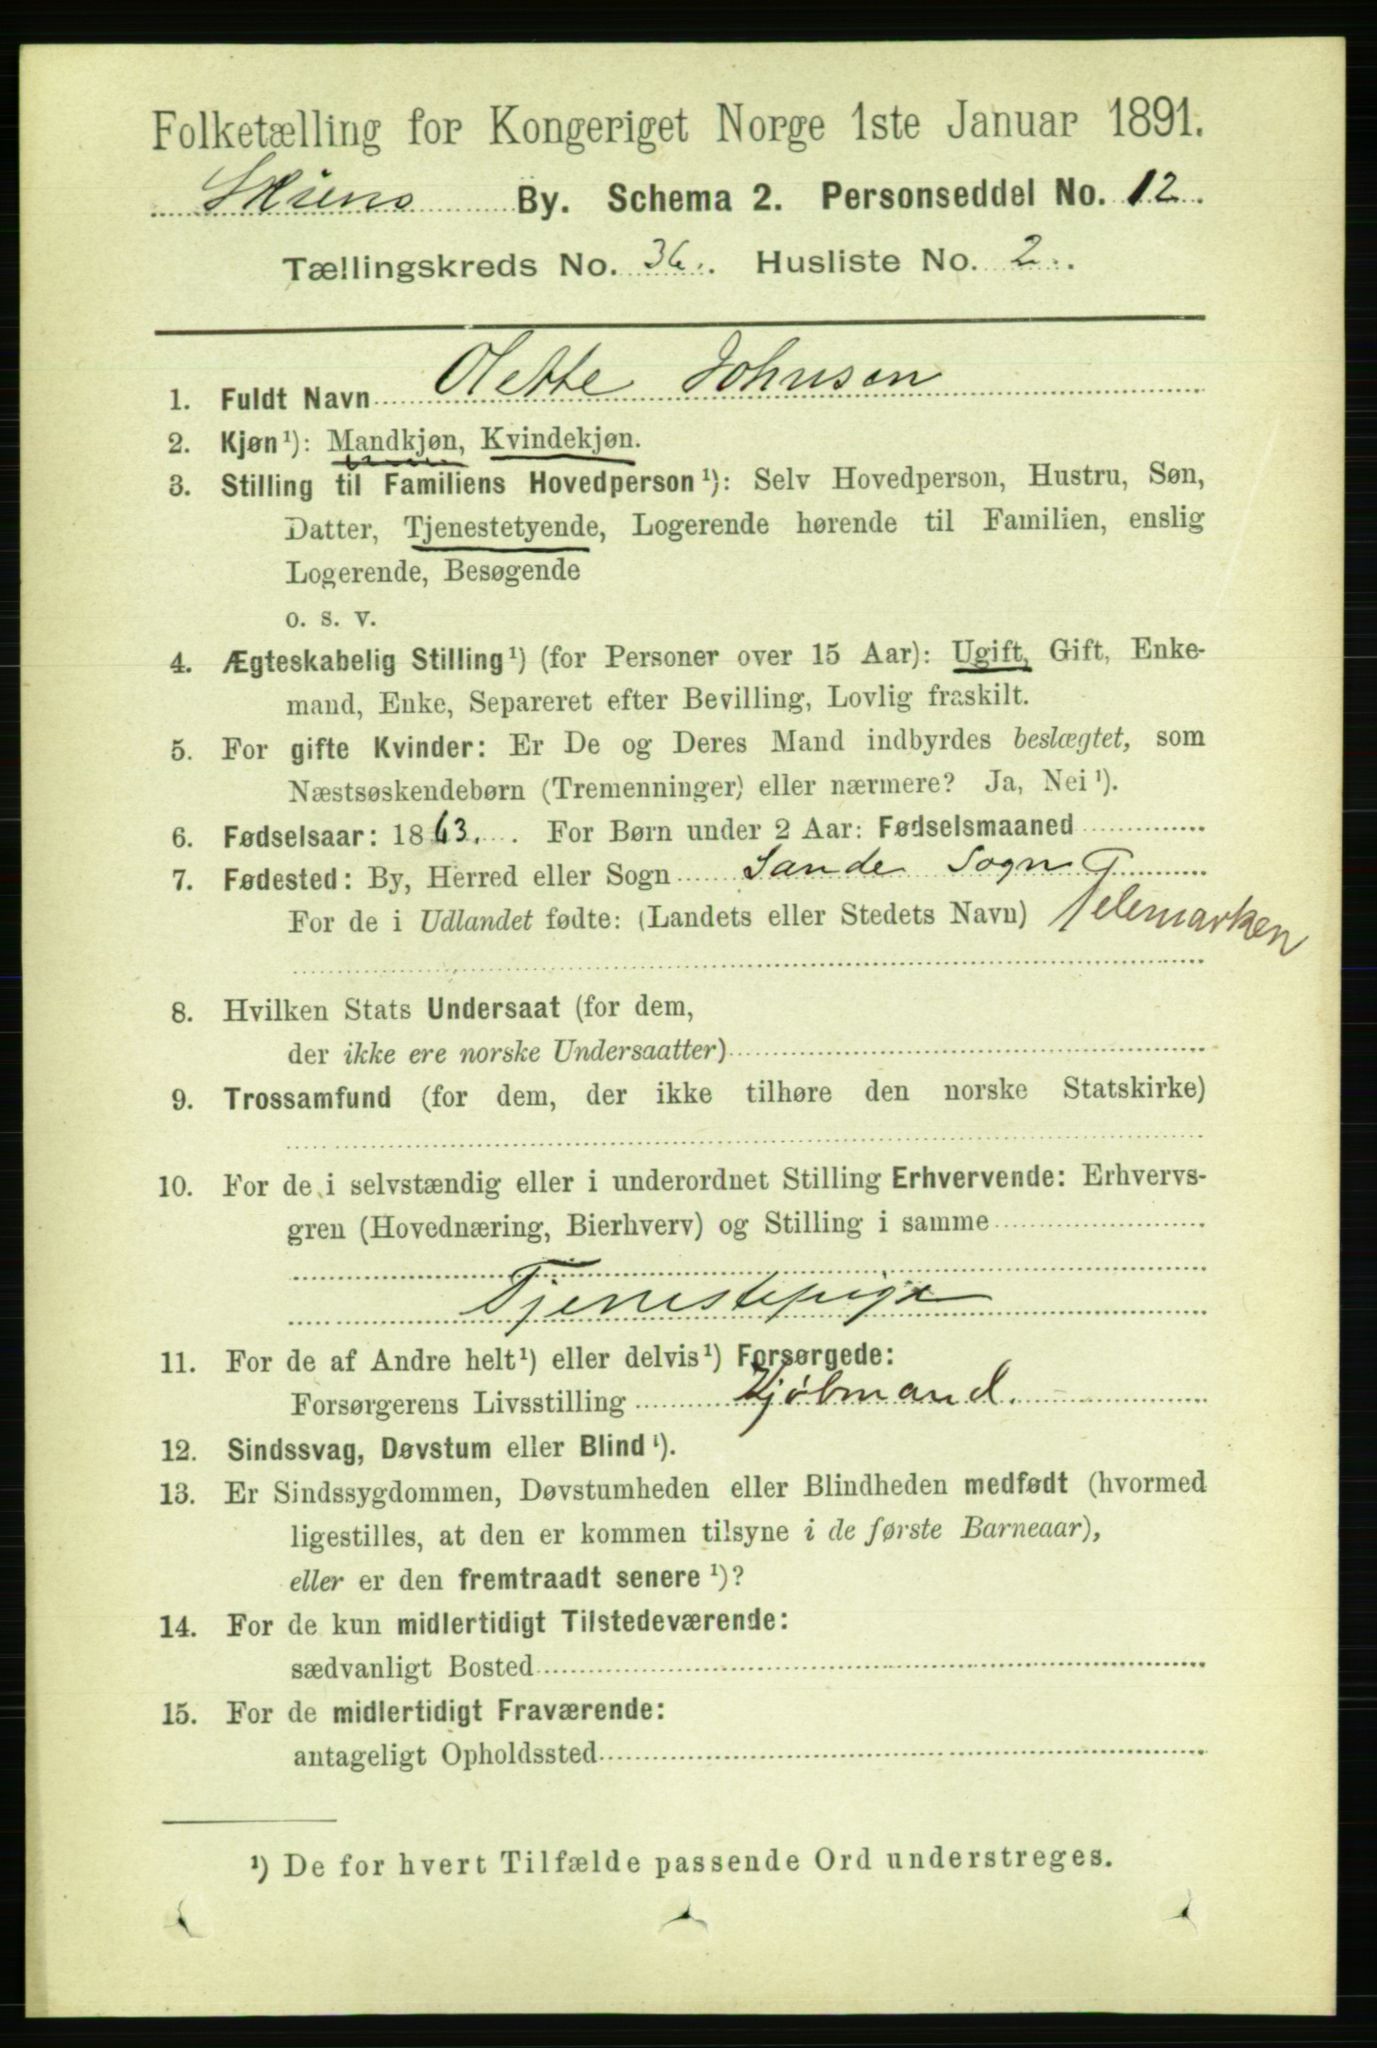 Folketælling for Kongeriget Norge 1ste Januar 1891.
Skiens By. Schema 2. Personseddel No. 12.
Tællingskreds No. 36. Husliste No. 2.
1. Fuldt Navn Olette Johnsen
2. Kjøn¹): Mandkjøn, Kvindekjøn.
3. Stilling til Familiens Hovedperson¹): Selv Hovedperson, Hustru, Søn,
Datter, Tjenestetyende, Logerende hørende til Familien, enslig
Logerende, Besøgende
o. s. v.
4. Ægteskabelig Stilling¹) (for Personer over 15 Aar): Ugift, Gift, Enke-
mand, Enke, Separeret efter Bevilling, Lovlig fraskilt.
5. For gifte Kvinder: Er De og Deres Mand indbyrdes beslægtet, som
Næstsøskendebørn (Tremenninger) eller nærmere? Ja, Nei¹).
6. Fødselsaar: 1863. For Børn under 2 Aar: Fødselsmaaned
7. Fødested: By, Herred eller Sogn Sande Sogn
For de i Udlandet fødte: (Landets eller Stedets Navn) Telemarken
8. Hvilken Stats Undersaat (for dem,
der ikke ere norske Undersaatter)
9. Trossamfund (for dem, der ikke tilhøre den norske Statskirke)
10. For de i selvstændig eller i underordnet Stilling Erhvervende: Erhvervs-
gren (Hovednæring, Bierhverv) og Stilling i samme
Tjenestepige
11. For de af Andre helt¹) eller delvis¹) Forsørgede:
Forsørgerens Livsstilling Kjøbmand.
12. Sindssvag, Døvstum eller Blind¹).
13. Er Sindssygdommen, Døvstumheden eller Blindheden medfødt (hvormed
ligestilles, at den er kommen tilsyne i de første Barneaar),
eller er den fremtraadt senere¹)?
14. For de kun midlertidigt Tilstedeværende:
sædvanligt Bosted
15. For de midlertidigt Fraværende:
antageligt Opholdssted
¹) De for hvert Tilfælde passende Ord understreges.